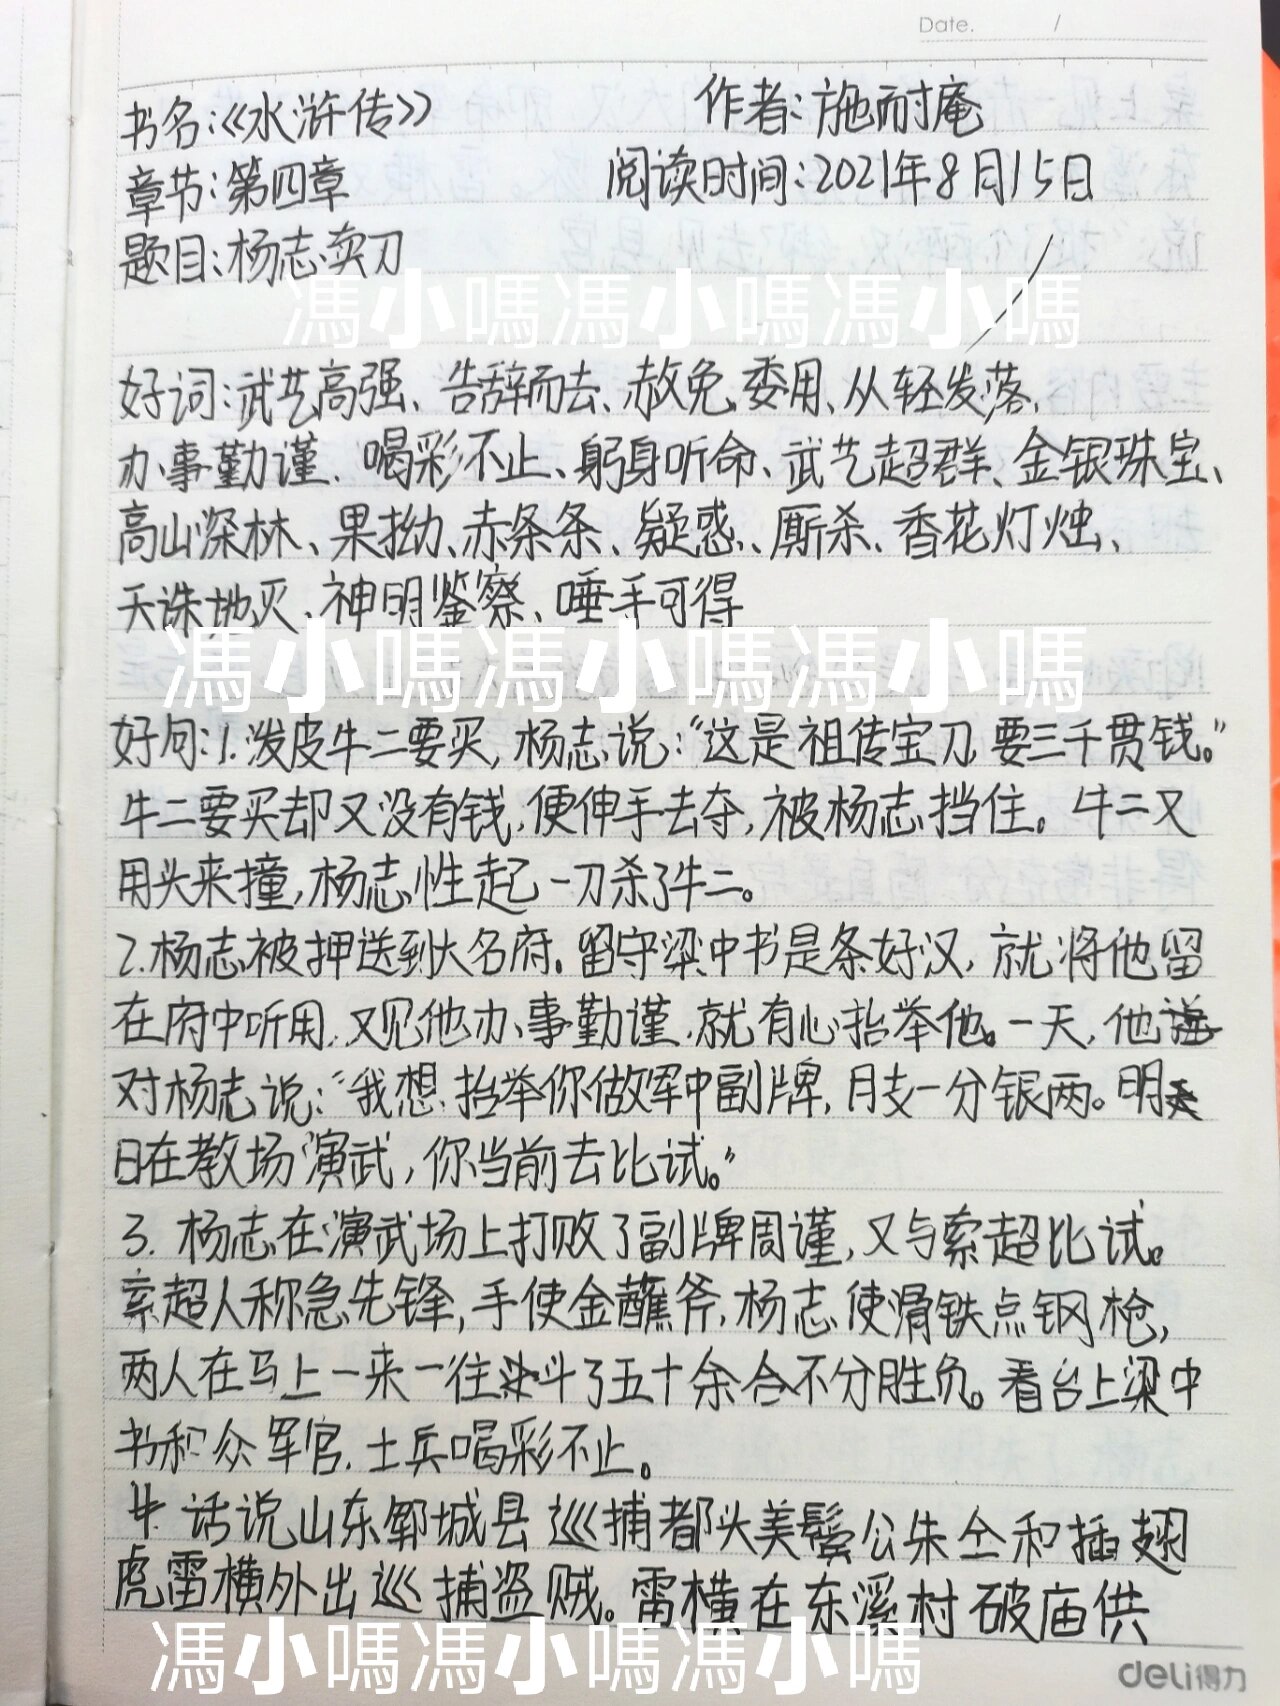 Date. /
书名:《水浒传》 作者:施耐庵
章节:第四章 阅读时间:2021年8月15日
题目:杨志卖刀
馮小嗎馮小嗎馮小嗎
好词:武艺高强、告辞而去、赦免、委用、从轻发落、
办事勤谨、喝彩不止、躬身听命、武艺超群、金银珠宝、
高山深林、果拗、赤条条、疑惑、厮杀、香花灯烛、
天诛地灭、神明鉴察、唾手可得
馮小嗎馮小嗎馮小嗎
好句:1.泼皮牛二要买,杨志说:“这是祖传宝刀,要三千贯钱。”
牛二要买却又没有钱,便伸手去夺,被杨志挡住。牛二又
用头来撞,杨志性起一刀杀了牛二。
2.杨志被押送到大名府。留守梁中书是条好汉,就将他留
在府中听用,又见他办事勤谨,就有心抬举他。一天,他
对杨志说:“我想抬举你做军中副牌,月支一分银两。明
日在教场演武,你当前去比试。”
3.杨志在演武场上打败了副牌周谨,又与索超比试。
索超人称急先锋,手使金蘸斧,杨志使滑铁点钢枪,
两人在马上一来一往斗了五十余合不分胜负。看台上梁中
书和众军官、士兵喝彩不止。
4.话说山东郓城县巡捕都头美鬓公朱仝和插翅
虎雷横外出巡捕盗贼。雷横在东溪村破庙供
馮小嗎馮小嗎馮小嗎
deli得力